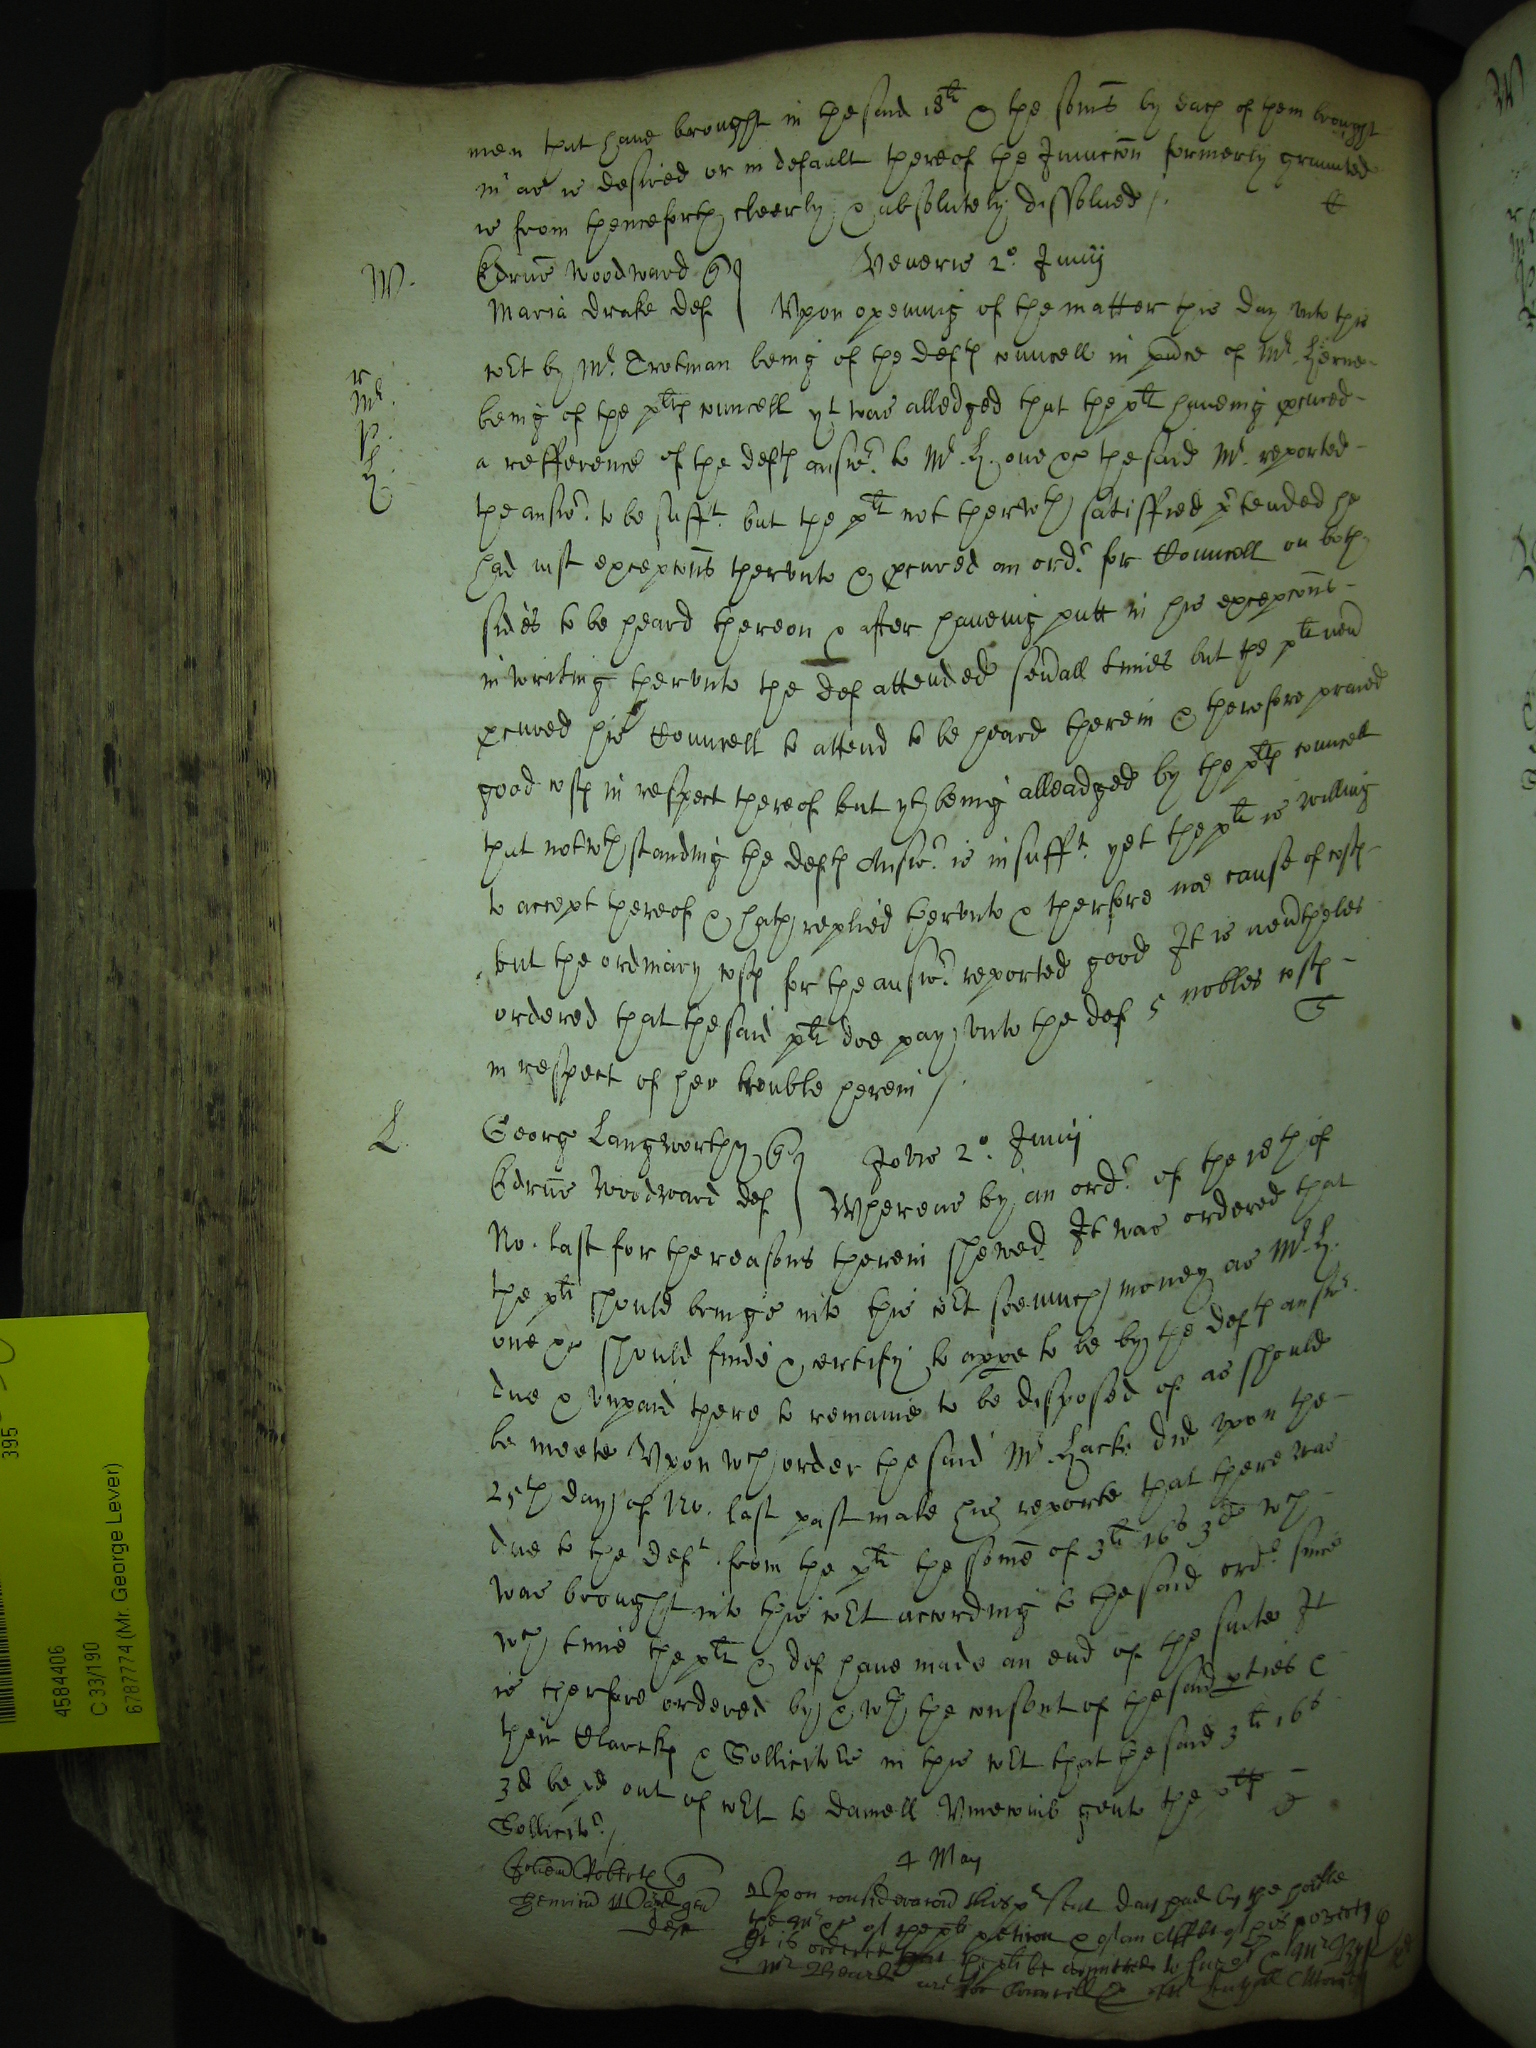 men that have brought in the said 18li & the somes by each of them brought
in as is desired or in default thereof the Iniuncon formerly graunted
is from thenceforth cleerly & absolutely dissolued /.
W.
Edrus Woodward q
Maria Drake def
Veneris 2o. Junij
Vpon opening of the matter this day vnto this
r
Mr.
p.
H.
cort by Mr. Trotman being of the defts councell in pnce of Mr. Herne
being of the plts councell yt was alledged that the plt haveing pcured
a refference of the defts answr. to Mr. H. one &c the said Mr. reported
the answr. to be sufft. but the plt not therwth satisfied ptended he
had iust excepcons thervnto & pcured an ordr. for Councell on both
sides to be heard thereon & after haveing putt in his excepcons
in writing thervnto the def attended seuall times but the plt neu
pcured his Councell to attend to be heard therein & therefore praied
good costs in respect thereof but yt being alleadged by the plts councell
that notwthstanding the defts Answr. is insufft. yet the plt is willing
to accept thereof & hath replied thervnto & therfore noe cause of costs
but the ordinary costs for the answr. reported good It is neutheles
ordered that the said plt doe pay vnto the def 5 nobles costs
in respect of her trouble herein /.
L.
George Langworthy q
Edrus Woodward def
Jovis 2o. Junij
Whereas by an ordr. of the 18th of
No. last for the reasons therein shewed It was ordered that
the plt should bringe into this cort soe much money as Mr. H.
one &c should finde & certify to appe to be by the defts answr.
due & vnpaid there to remaine to be disposed of as should
be meete Vpon wch order the said Mr. Hacke did vpon the
25th day of No. last past make his reporte that there was
due to the deft. from the plt the some of 3li 16s 3d wch
was brought into this cort according to the said ordr. since
wch time the plt & def have made an end of the suite It
is therfore ordered by & wth the consent of the said pties &
their Clarcks & Sollicitors in this cort that the said 3li 16s
3d be pd out of cort to Daniell Vmecomb gent the plts
Sollicitr. /
Johem Roberts q
Henricu Ward gen
def
4 May
Vpon consideracon this psent day had by the
the Mr of the plts peticon & of an Affidt of his poverty
It is ordered that the plt be admitted to sue & Mr
Mr Beard are for Councell &
4584406
C 33/190
6787774 (Mr. George Lever)
395